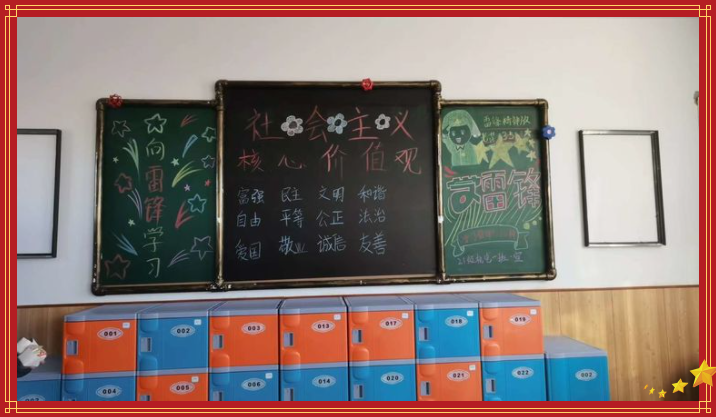 向雷锋学习
社会主义
核心价值观
富强 民主 文明 和谐
自由 平等 公正 法治
爱国 敬业 诚信 友善
雷锋精神永
学雷锋
001
002
003
013
017
018
019
004
005
006
014
020
021
022
002